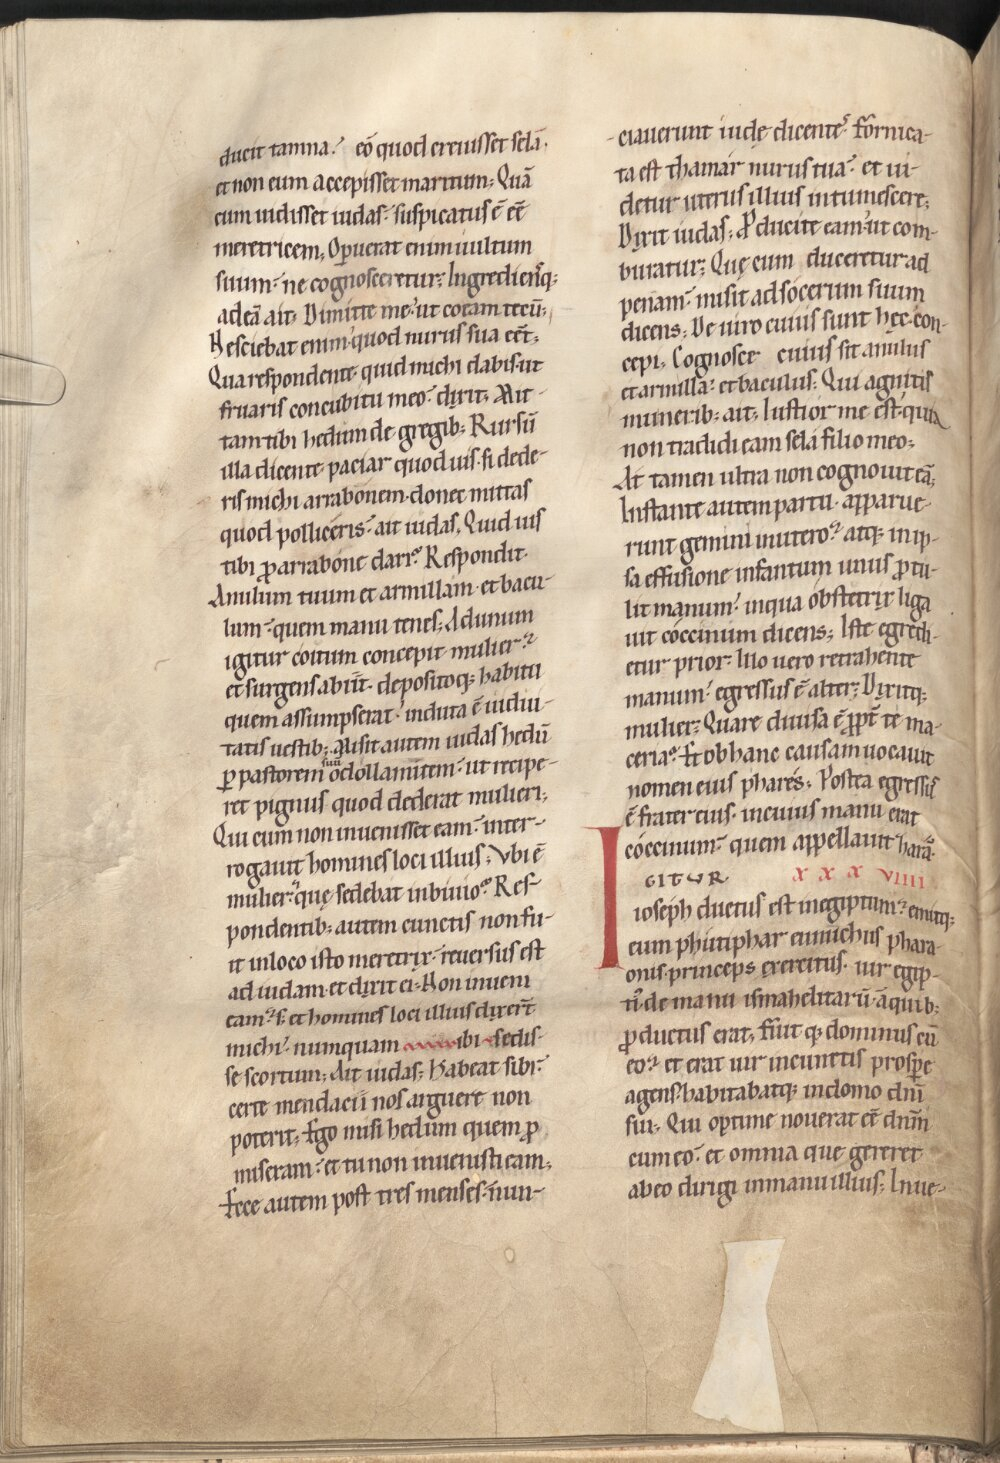 ducit tamna. eo quod creuisset selā.
et non eum accepisset maritum; Quā
cum uidisset iudas. suspicatus ē eē
meretricem; Operuerat enim uultum
suum. ne cognosceretur; Ingrediensq;
ad eā ait; Dimitte me. ut coeam tecū;
Nesciebat enim quod nurus sua eēt;
Qua respondente. quid michi dabis ut
fruaris concubitu meo. dixit; Mit
tam tibi hedum de gregib; Rursū
illa dicente. patiar quod uis. si dede-
ris michi arrabonem. donec mittas
quod polliceris. ait iudas. Quid uis
tibi ꝓ arrabone dari? Respondit.
Anulum tuum et armillam. et bacu-
lum. quem manu tenes; Ad unum
igitur coitum concepit mulier.
et surgens abiit. depositoq; habitu
quem assumpserat. induta ē uidui-
tatis uestib; Misit autem iudas hedū
ꝑ pastorem suū odollamitem. ut recipe-
ret pignus quod dederat mulieri;
Qui cum non inuenisset eam. inter-
rogauit homines loci illius; Vbi ē
mulier. quę sedebat in biuio? Res-
pondentib; autem cunctis non fu-
it in loco isto meretrix. reuersus est
ad iudam. et dixit ei; Non inueni
eam. s; et homines loci illius dixerūt
michi. numquam ibi sedis-
se scortum; Ait iudas; habeat sibi.
certe mendacii nos arguere non
poterit; Ego misi hedum quem ꝓ
miseram. et tu non inuenisti eam;
Ecce autem post tres menses. nun-
ciauerunt iudę dicentes. fornica-
ta est thamar nurus tua. et ui-
detur uterus illius intumescere;
Dixit iudas; Ꝓducite eam. ut com-
buratur; Quę cum duceretur ad
penam. misit ad socerum suum
dicens; De uiro cuius sunt hęc. con-
cepi; Cognosce cuius sit anulus
et armilla. et baculus; Qui agnitis
munerib; ait; Iustior me est. quia
non tradidi eam sela filio meo;
At tamen ultra non cognouit eā;
Instante autem partu. apparue-
runt gemini in utero. atq; in ip-
sa effusione infantum unus ꝓtu-
lit manum. in qua obstetrix liga
uit coccinum dicens; Iste egredi-
etur prior; Illo uero retrahente
manum. egressus ē alter; Dixitq;
mulier; Quare diuisa ē ꝓpt̄ te ma-
ceria? Et ob hanc causam uocauit
nomen eius phares; Postea egressus
ē frater eius. in cuius manu erat
coccinum. quem appellauit harā.
IGITUR XXXVIIII
ioseph ductus est in egiptum. emitq;
eum phutiphar eunuchus phara-
onis. princeps exercitus. uir egip-
ti. de manu ismahelitarū. a quib;
ꝑductus erat; fuitq; dominus cū
eo. et erat uir in cunctis prospe
agens. habitabatq; in domo dn̄i
sui; Qui optime nouerat eē dn̄m
cum eo. et omnia que gereret
ab eo dirigi in manu illius; Inue-